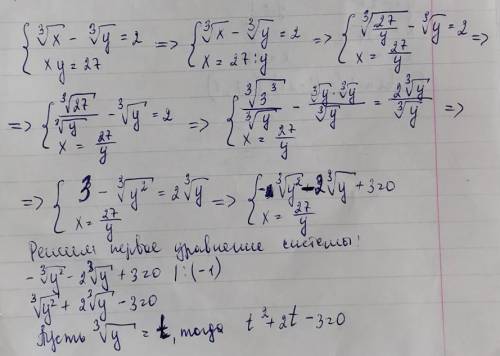 { ∛x - ∛y = 2 ; xy = 27 => { ∛x - ∛y = 2 ; x = 27 : y => { ∛(27/y) - ∛y = 2 ; x = 27/y =>
=> { ∛27/∛y - ∛y = 2 ; x = 27/y => { ∛(3³)/∛y - (∛y · ∛y)/∛y = 2∛y/∛y ; x = 27/y =>
=> { 3 - ∛(y²) = 2∛y ; x = 27/y => { -∛(y²) - 2∛y + 3 = 0 ; x = 27/y
Решим первое уравнение системы:
-∛(y²) - 2∛y + 3 = 0 | : (-1)
∛(y²) + 2∛y - 3 = 0
Пусть ∛y = t, тогда t² + 2t - 3 = 0